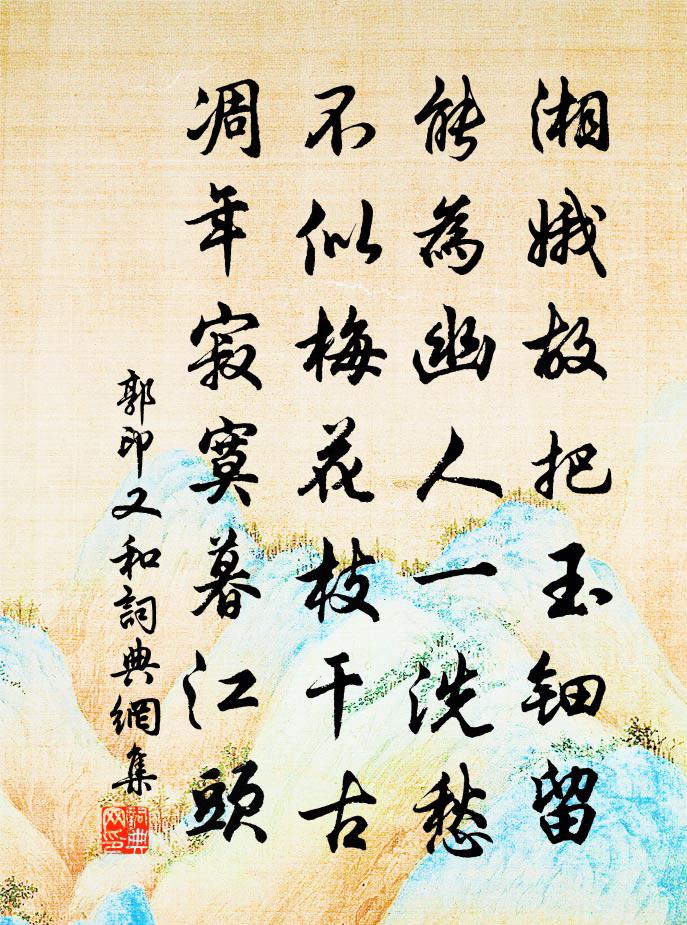 湘娥故把玉钿留
能為幽人一洗愁
不似梅花枝干古
凋年寂寞暮江頭
郭印又和詞典網集
詞典網印